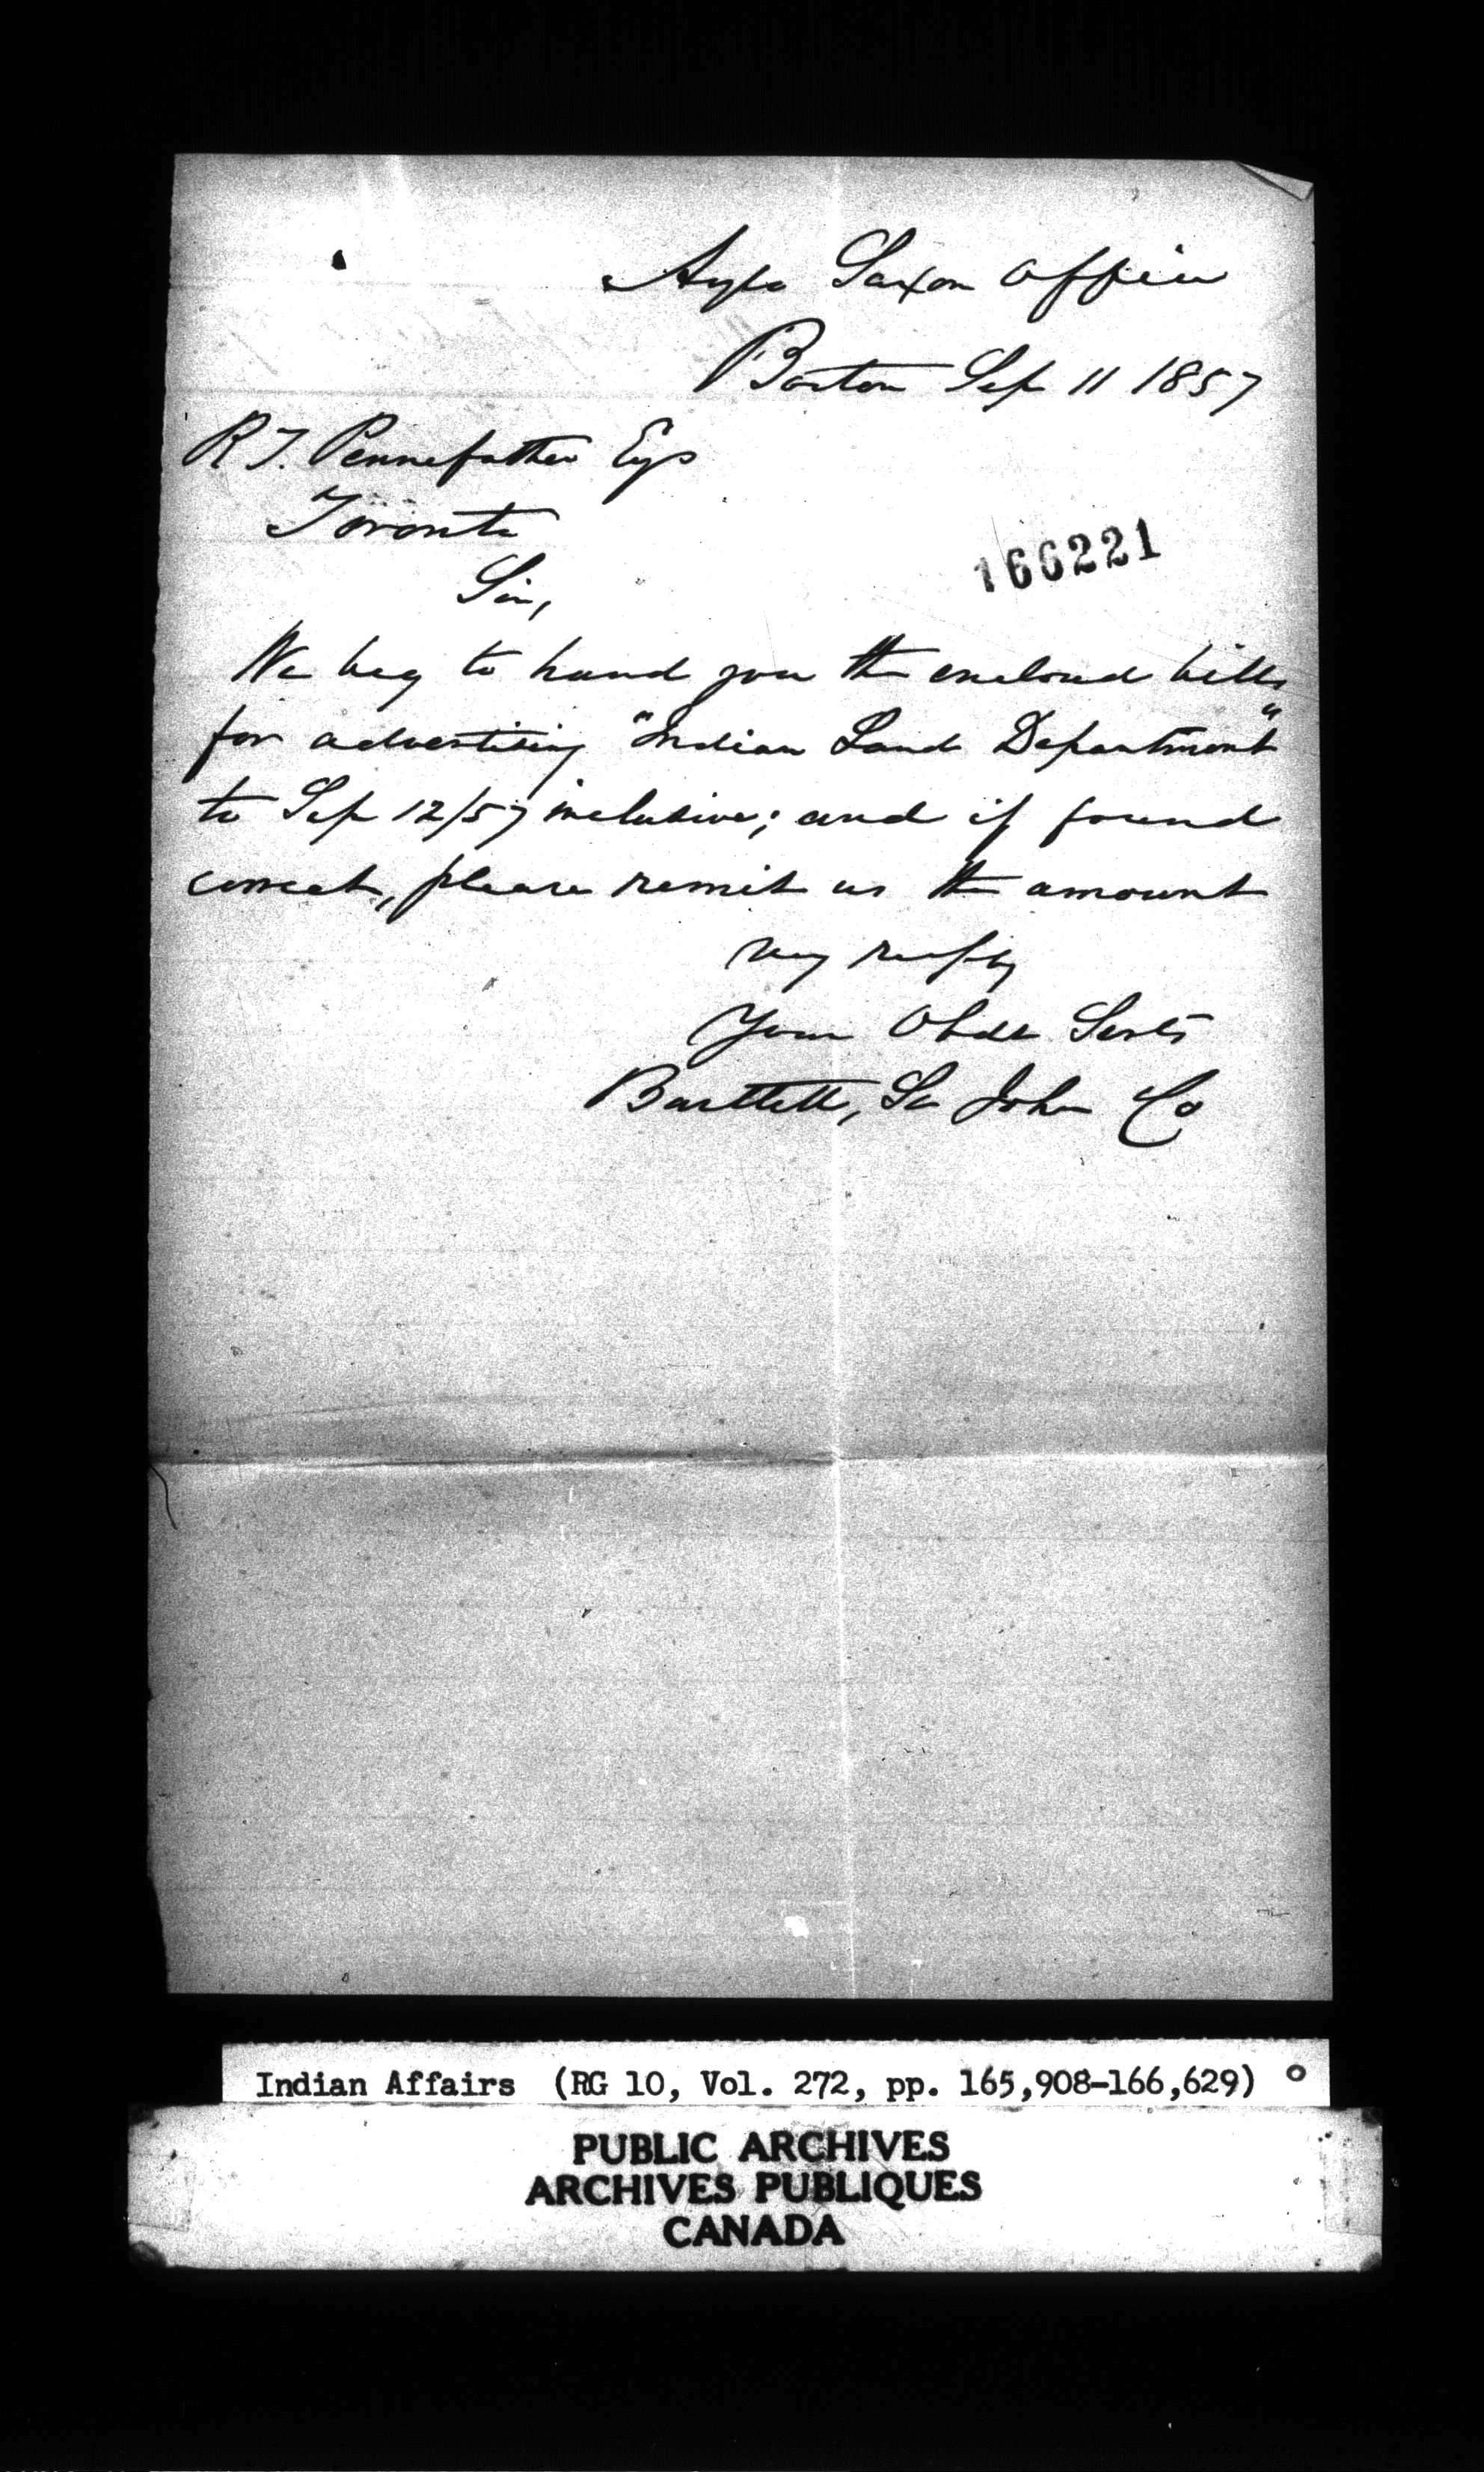 Anglo Saxon Office
Boston Sep 11 1857
R T. Pennefather Esq
Toronto
Sir,
166221
We beg to hand you the enclosed bills
for advertising "Indian Land Department"
to Sep 12/57 inclusive; and if found
correct, please remit us the amount
Very respty
Your Obdt Servts
Bartlett, St John Co
Indian Affairs (RG 10, Vol. 272, pp. 165,908-166,629)
PUBLIC ARCHIVES
ARCHIVES PUBLIQUES
CANADA